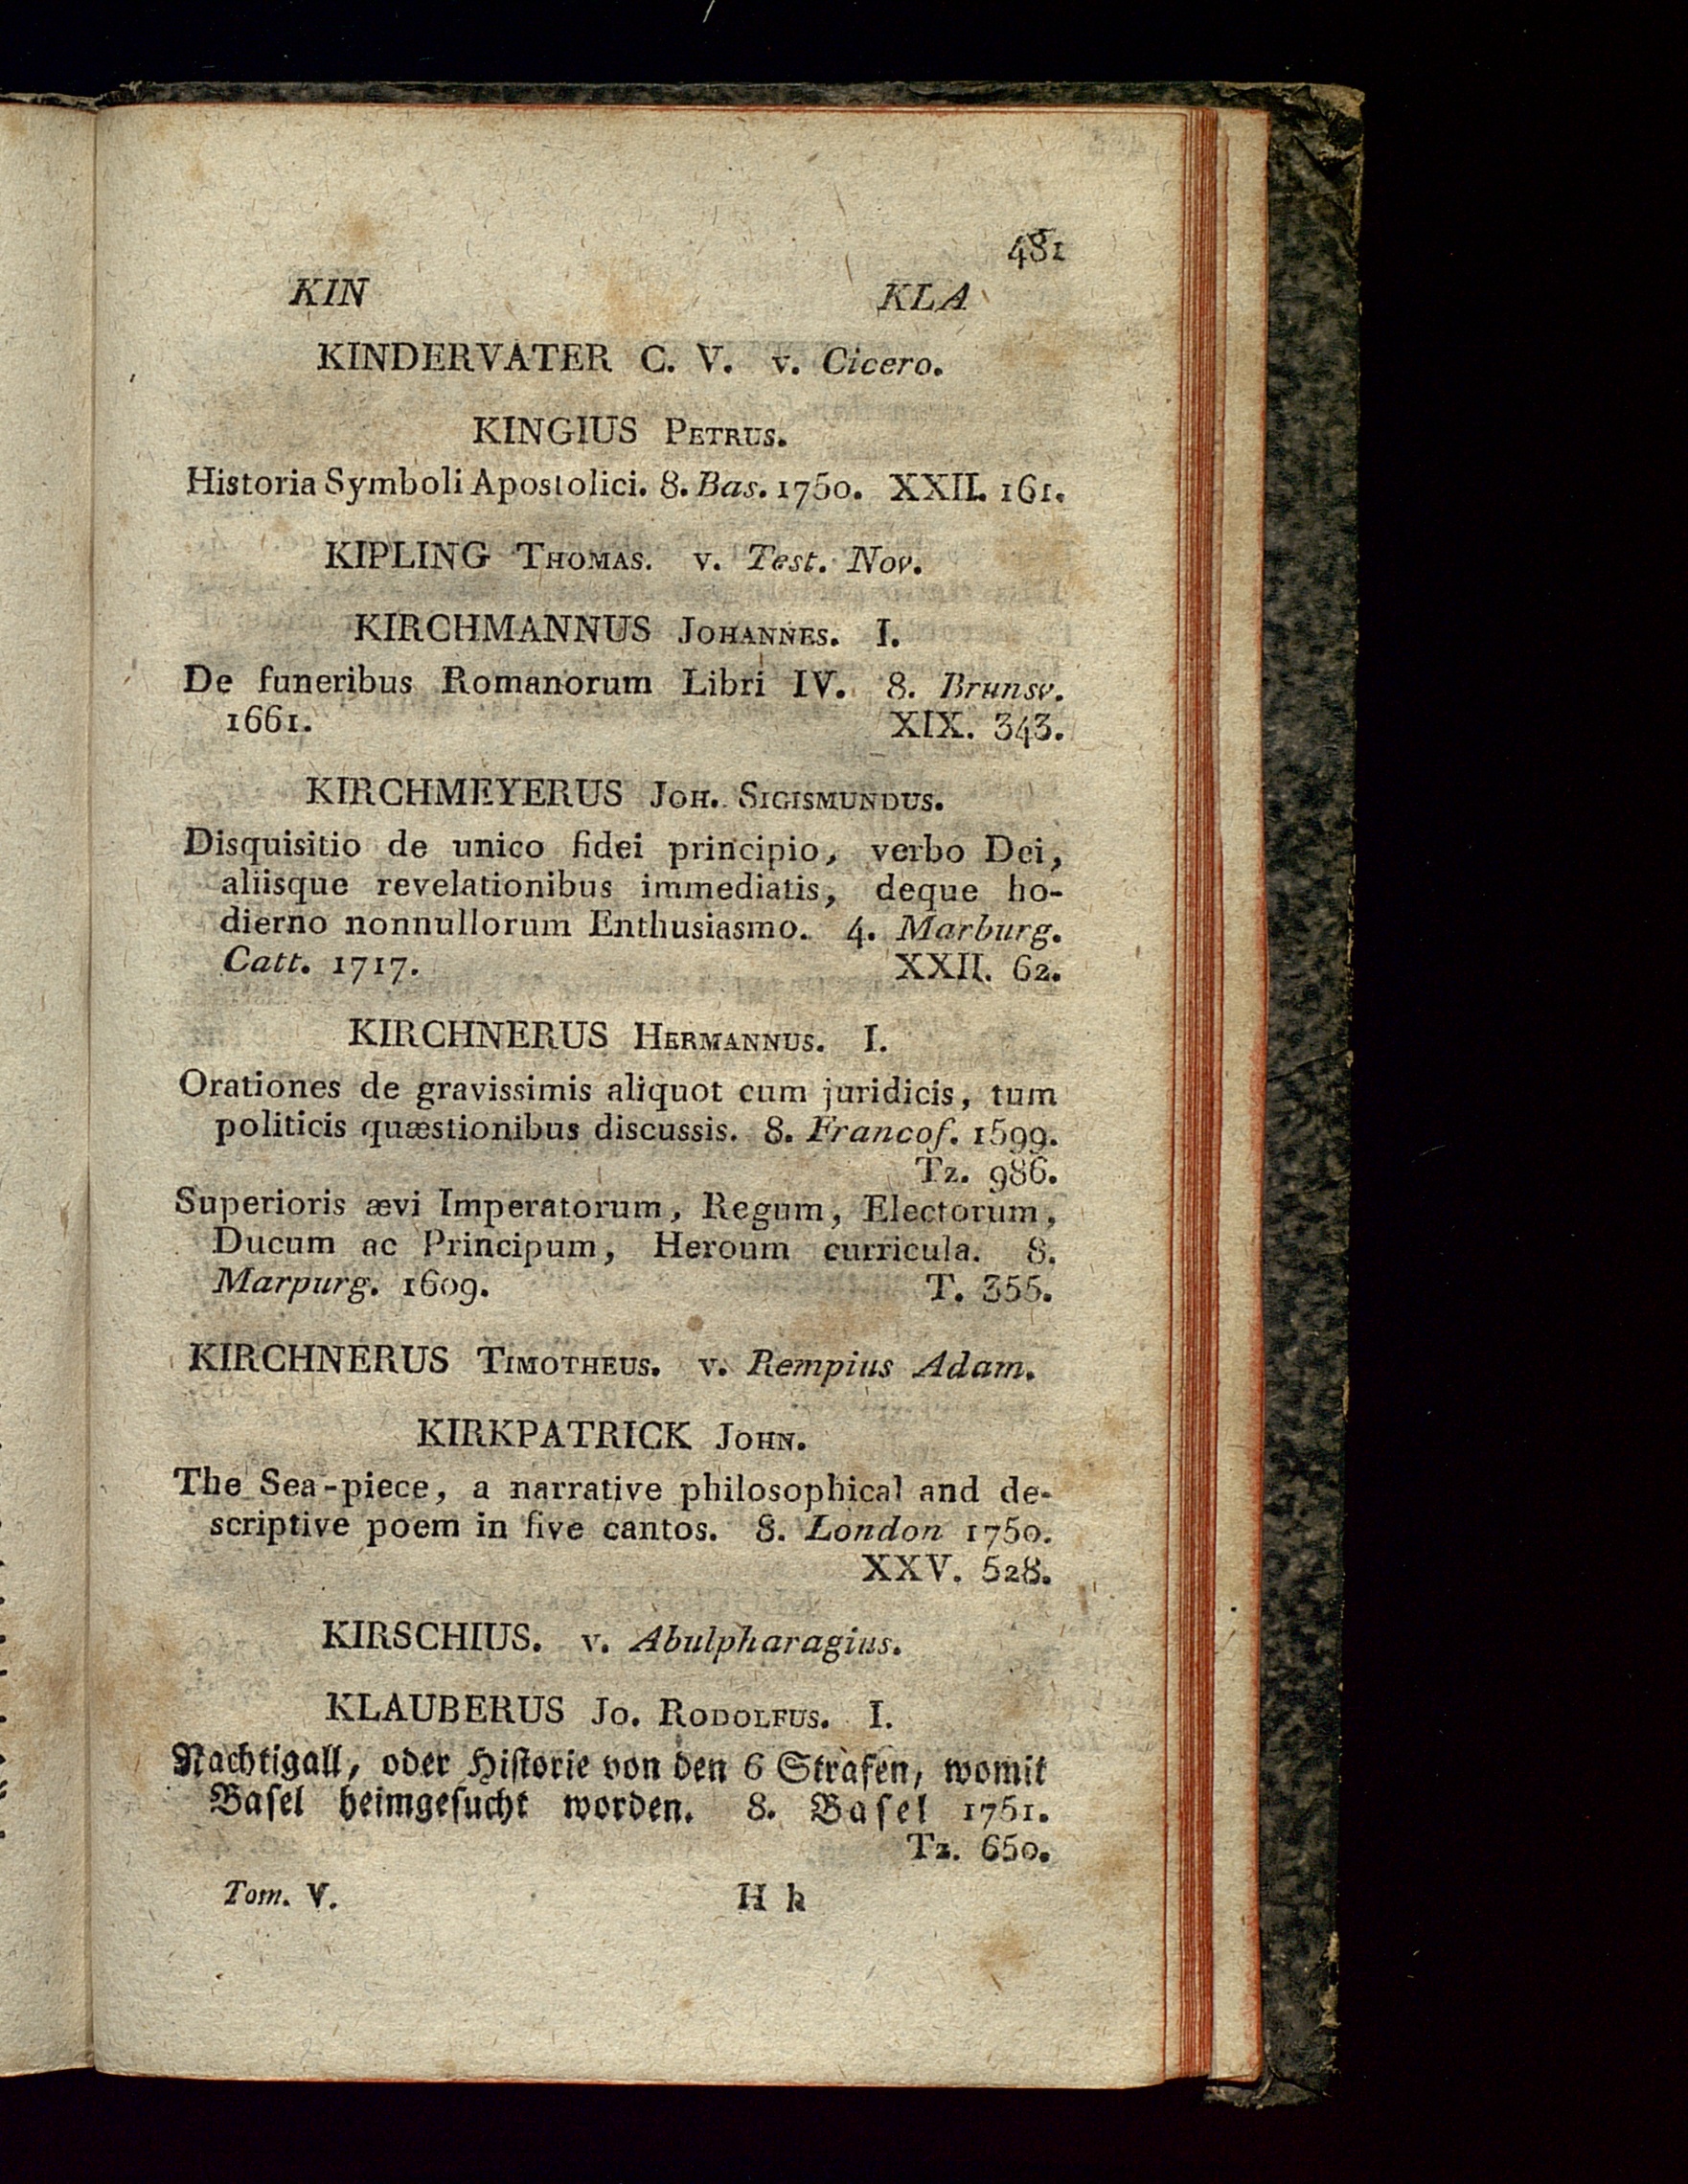 481
KIN KLA
KINDERVATER C. V. v. Cicero.
KINGIUS PETRUS.
Historia Symboli Apostolici. 8. Bas. 1750. XXII. 161.
KIPLING THOMAS. v. Test. Nov.
KIRCHMANNUS JOHANNES. I.
De funeribus Romanorum Libri IV. 8. Brunsv.
1661. XIX. 343.
KIRCHMEYERUS JOH. SIGISMUNDUS.
Disquisitio de unico fidei principio, verbo Dei,
aliisque revelationibus immediatis, deque ho-
dierno nonnullorum Enthusiasmo. 4. Marburg.
Catt. 1717. XXII. 62.
KIRCHNERUS HERMANNUS. I.
Orationes de gravissimis aliquot cum juridicis, tum
politicis quæstionibus discussis. 8. Francof. 1599.
Tz. 986.
Superioris ævi Imperatorum, Regum, Electorum,
Ducum ac Principum, Heroum curricula. 8.
Marpurg. 1609. T. 355.
KIRCHNERUS TIMOTHEUS. v. Rempius Adam.
KIRKPATRICK JOHN.
The Sea-piece, a narrative philosophical and de-
scriptive poem in five cantos. 8. London 1750.
XXV. 528.
KIRSCHIUS. v. Abulpharagius.
KLAUBERUS JO. RODOLFUS. I.
Nachtigall, oder Hiſtorie von den 6 Strafen, womit
Baſel heimgeſucht worden. 8. Baſel 1751.
Tz. 650.
Tom. V. H h